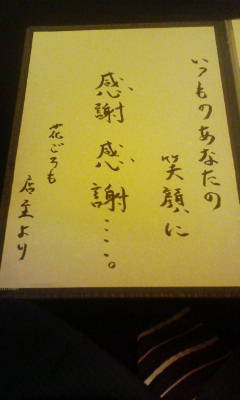 いつものあなたの
笑顔に
感謝 感謝…。
花ごろも
店主より